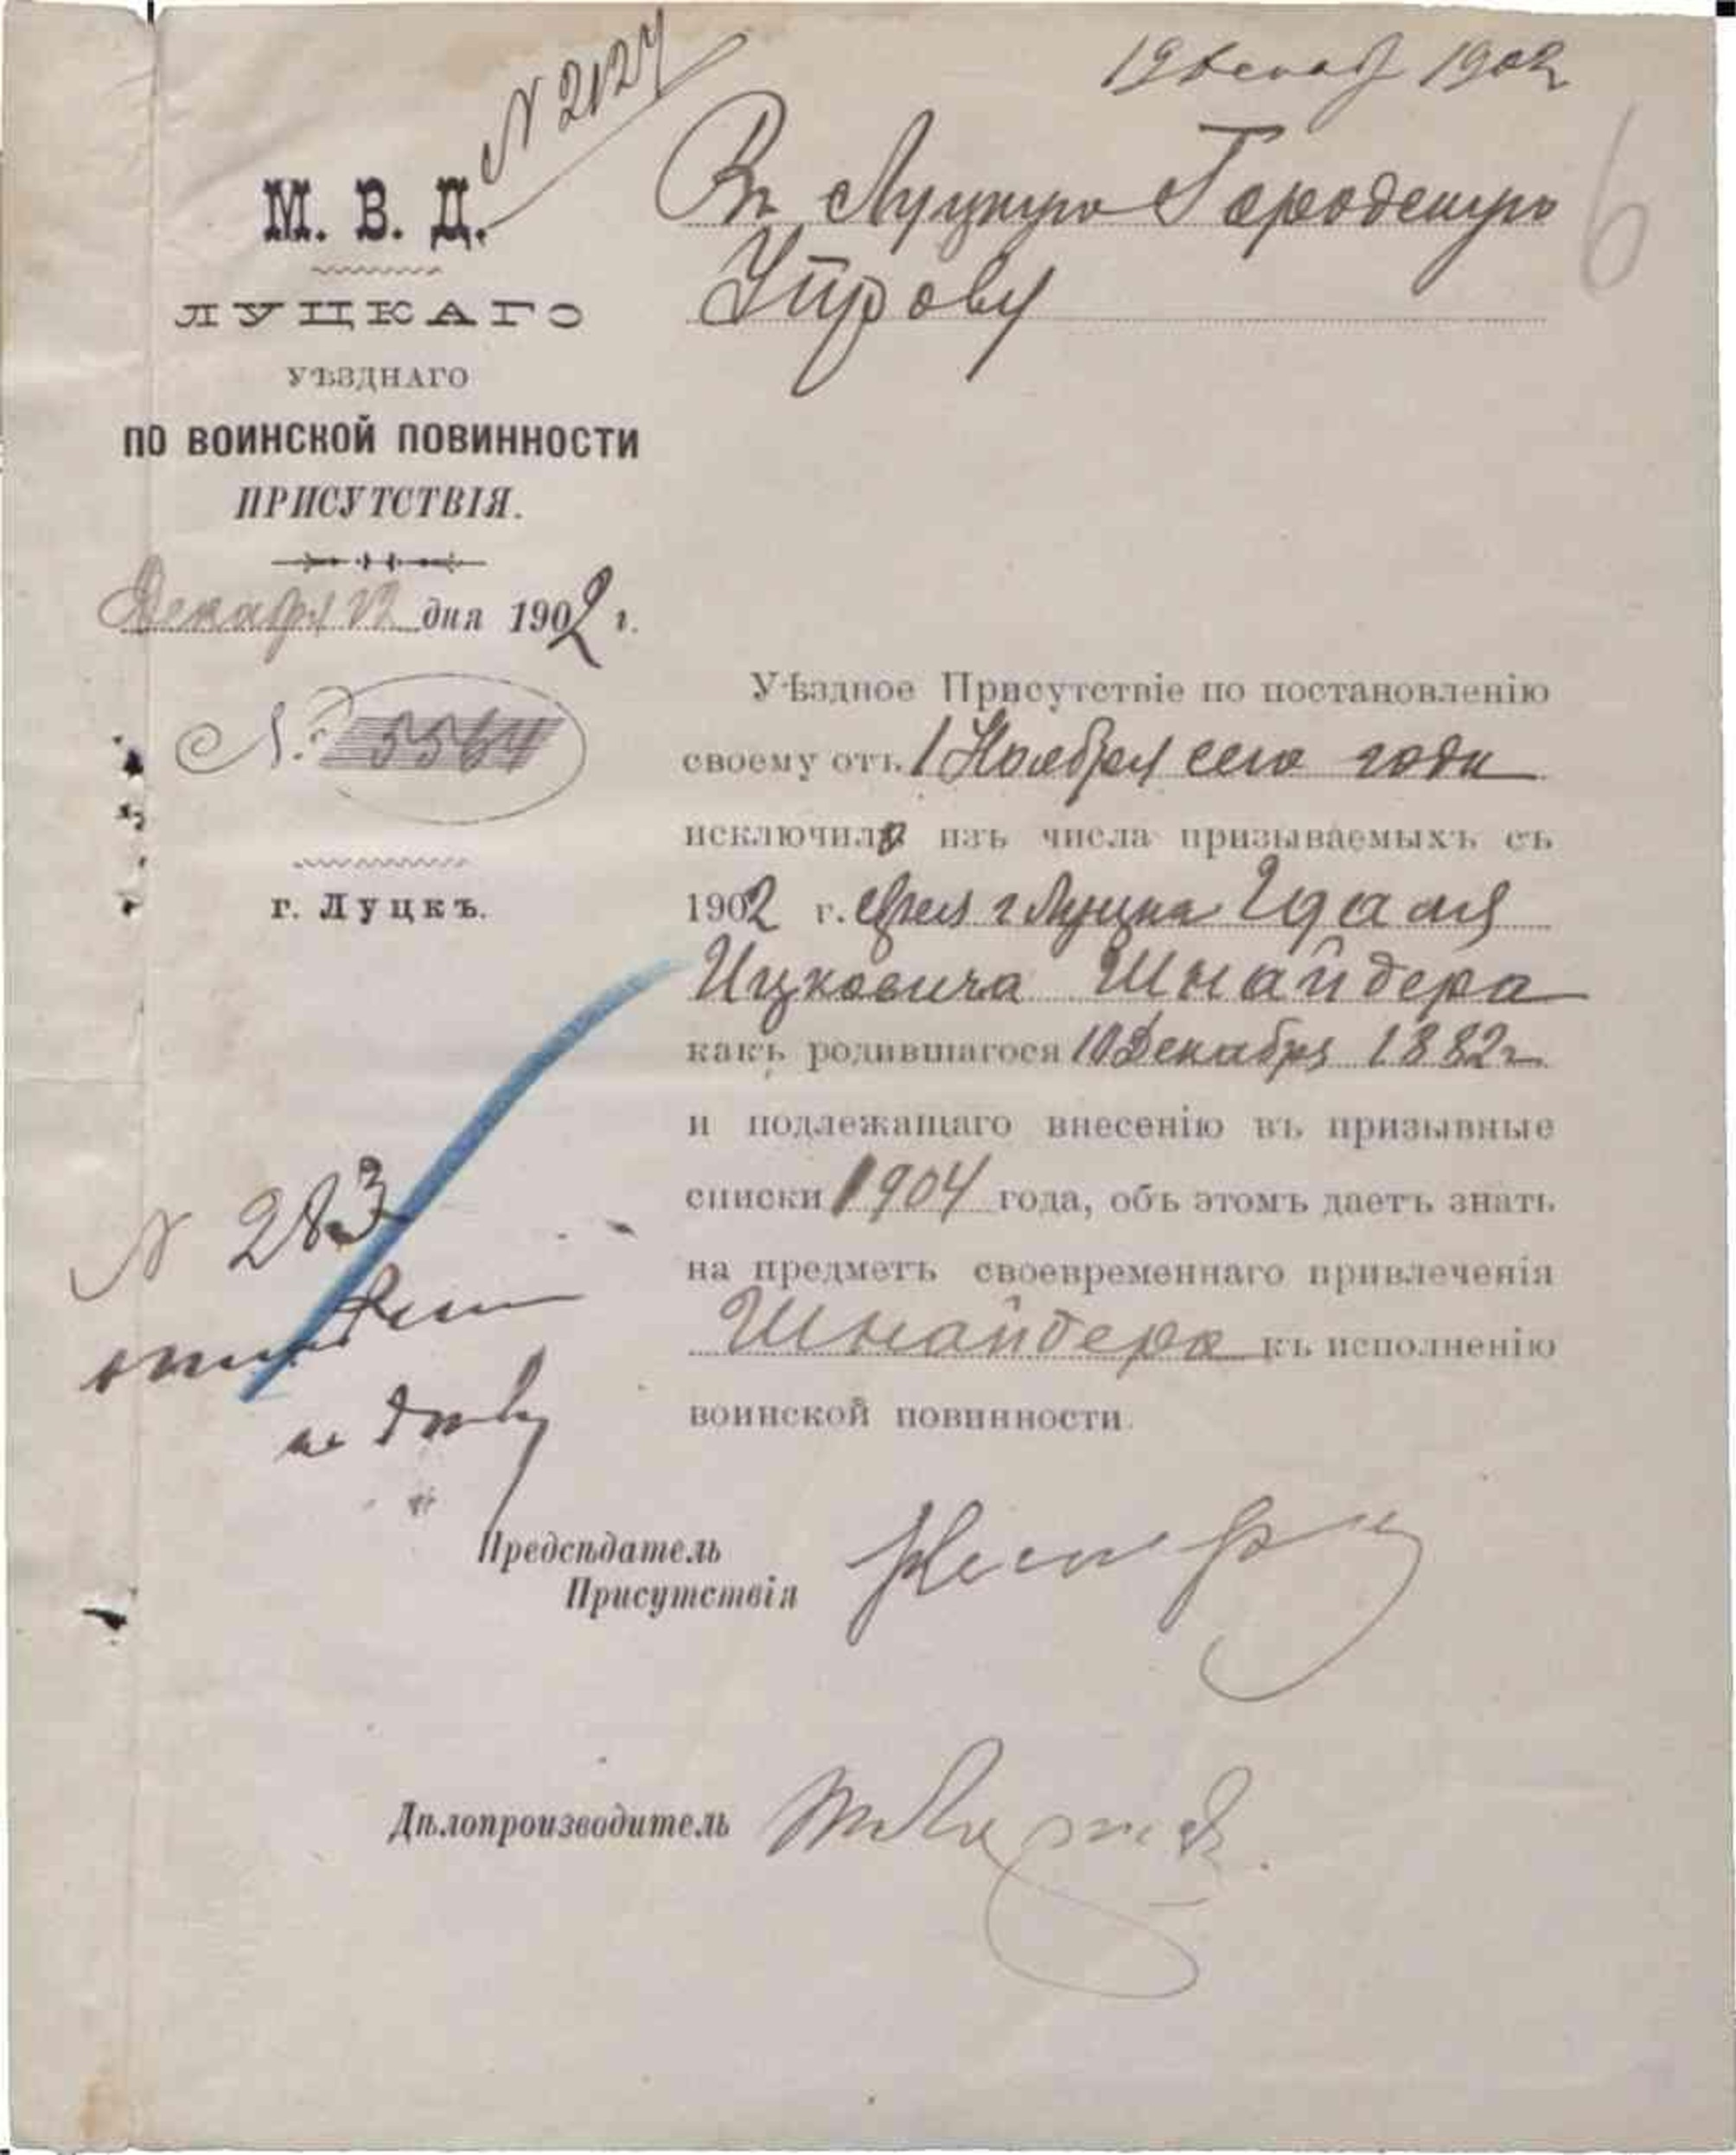 N 2127
19 Декаб 1902
6
М. В. Д.
ЛУЦКАГО
УѢЗДНАГО
ПО ВОИНСКОЙ ПОВИННОСТИ
ПРИСУТСТВІЯ.
Декабря 12 дня 1902 г.
№ 5564
г. Луцкъ.
Въ Луцкую Городскую
Управу
Уѣздное Присутствіе по постановленію
своему отъ 1 Ноября сего года
исключило изъ числа призываемыхъ съ
1902 г. еврея г Луцка
Ицковича Шнайдера
какъ родившагося 10 Декабря 1882 г.
и подлежащаго внесенію въ призывные
списки 1904 года, объ этомъ даетъ знать
на предметъ своевременнаго привлеченія
Шнайдера къ исполненію
воинской повинности.
N 283
Предсѣдатель
Присутствія
Дѣлопроизводитель